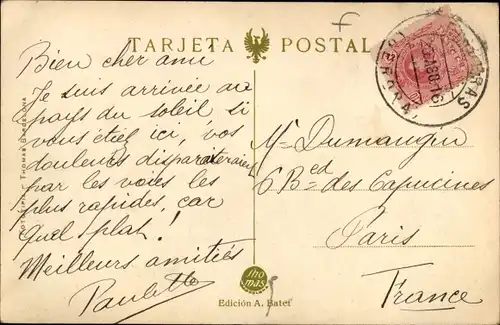 TARJETA POSTAL
Bien cher ami
Je suis arrivée au
pays du soleil si
vous étiez ici, vos
douleurs disparaîteraient
par les voies les
plus rapides, car
quel splat!
Meilleurs amitiés
Paulette
Mr Dumaugin
6 Bed des Capucines
Paris
France
Thomas
Edición A. Batet
THOMAS BARCELONA